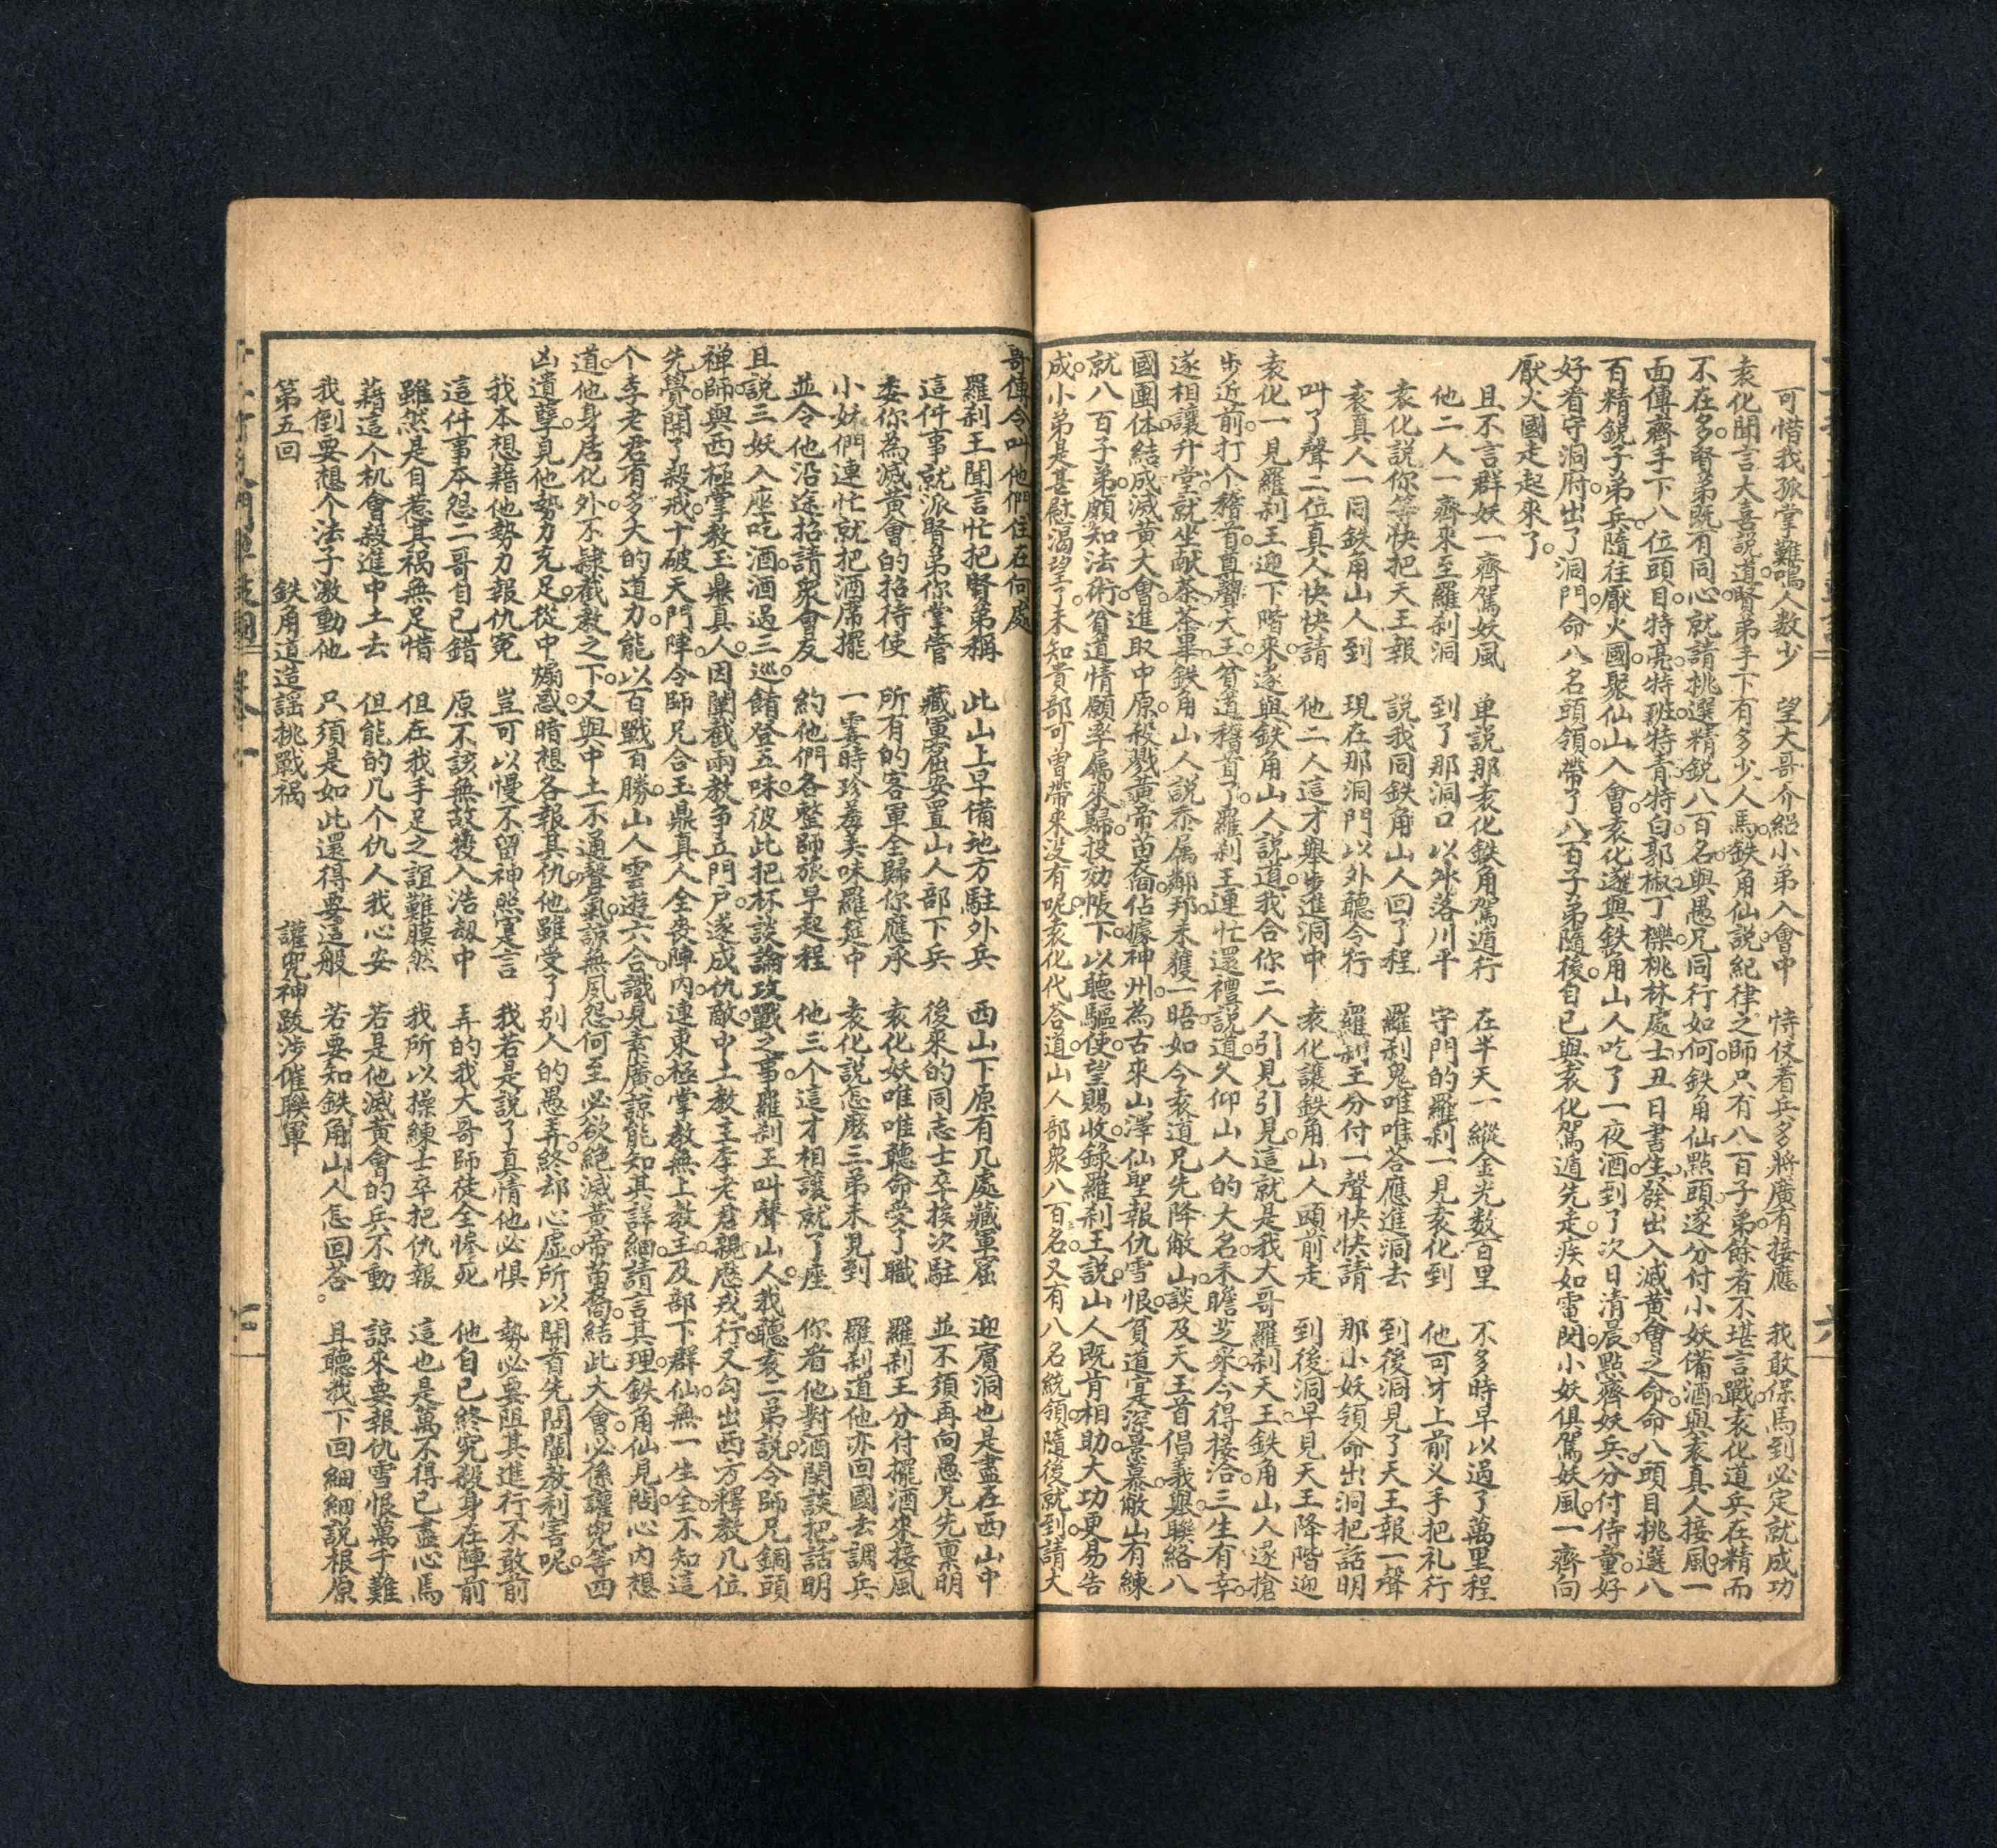 可惜我孤掌難鳴人数少　望大哥介紹小弟入會中　恃仗着兵多將廣有接應　我敢保馬到必定就成功
袁化聞言大喜説道賢弟手下有多少人馬鉄角仙説紀律之師只有八百子弟餘者不堪言戰袁化道兵在精而
不在多賢弟既有同心就請挑選精鋭八百名與愚兄同行如何鉄角仙點頭遂分付小妖備酒與袁真人接風一
面傳齊手下八位頭目特亮特班特青特白郭椒丁櫟桃林處士丑日書生發出入滅黄會之命命八頭目挑選八
百精鋭子弟兵隨往厭火國聚仙山入會袁化遂與鉄角山人吃了一夜酒到了次日清晨點齊妖兵分付侍童好
好看守洞府出了洞門命八名頭領帶了八百子弟隨後自已與袁化駕遁先走疾如電閃小妖俱駕妖風一齊向
厭火國走起來了
且不言群妖一齊駕妖風　单説那袁化鉄角駕遁行　在半天一縱金光数百里　不多時早以過了萬里程
他二人一齊來至羅刹洞　到了那洞口以外落川平　守門的羅刹一見袁化到　他可才上前义手把礼行
袁化説你等快把天王報　説我同鉄角山人回了程　羅刹鬼唯唯荅應進洞去　到後洞見了天王報一聲
袁真人一同鉄角山人到　現在那洞門以外聽令行　羅刹王分付一聲快快請　那小妖領命出洞把話明
叫了聲二位真人快快請　他二人這才舉步進洞中　袁化讓鉄角山人頭前走　到後洞早見天王降階迎
袁化一見羅刹王迎下階來遂與鉄角山人説道我合你二人引見引見這就是我大哥羅刹天王鉄角山人遂搶
步近前打个稽首尊聲大王貧道稽首了羅刹王連忙還禮説道久仰山人的大名未瞻芝采今得接洽三生有幸
遂相讓升堂就坐献茶茶畢鉄角山人説忝属鄰邦未獲一晤如今袁道兄先降敝山談及天王首倡義舉聯絡八
國團体結成滅黄大會進取中原殺戮黄帝苗裔佔據神州為古來山澤仙聖報仇雪恨貧道寔深景慕敝山有練
就八百子弟願知法術貧道情願率属來歸投効帳下以聽驅使望賜收錄羅刹王説山人既肯相助大功更易告
成小弟是甚慰渴望了未知貴部可曽帶來没有呢袁化代荅道山人部衆八百名又有八名統領隨後就到請大
哥傳令叫他們住在何處
羅刹王聞言忙把賢弟稱　此山上早備地方駐外兵　西山下原有几處藏軍窟　迎賓洞也是盡在西山中
這件事就派賢弟你掌管　藏軍窟安置山人部下兵　後來的同志士卒挨次駐　並不須再向愚兄先禀明
委你為滅黄會的招待使　所有的客軍全歸你應承　袁化妖唯唯聽命受了職　羅刹王分付擺酒來接風
小妹們連忙就把酒席擺　一霎時珍羞美味羅筵中　袁化説怎麽三弟未見到　羅刹道他亦回國去調兵
並令他沿途招請衆會友　約他們各整師旅早起程　他三个這才相讓就了座　你看他對酒閑談把話明
且説三妖入座吃酒酒過三巡餚登五味彼此把杯談論攻戰之事羅刹王叫聲山人我聽袁二弟説今師兄銅頭
禅師與西極掌教玉鼎真人因闡截兩教争立門户遂成仇敵中土教主李老君親歷戎行又勾出西方釋教几位
先覺開了殺戒十破天門陣令師兄合玉鼎真人全喪陣内連東極掌教無上教主及部下群仙無一生全不知這
个李老君有多大的道力能以百戰百勝山人雲遊六合識見素廣諒能知其詳細請言其理鉄角仙見問心内想
道他身居化外不隸截教之下又與中土不通聲氣諒無夙怨何至必欲絶滅黄帝苗裔結此大會必係讙兜等西
凶遺孽見他勢力充足從中煽惑暗想各報其仇他雖受了别人的愚弄終却心虚所以開首先問闡教利害呢
我本想藉他勢力報仇寃　豈可以慢不留神照寔言　我若是説了真情他必惧　勢必要阻其進行不敢前
這件事本怨二哥自已錯　原不該無故攙入浩刼中　弄的我大哥師徒全慘死　他自已終究殺身在陣前
雖然是自惹其禍無足惜　但在我手足之誼難膜然　我所以操練士卒把仇報　這也是萬不得已盡心焉
藉這个机會殺進中土去　但能的几个仇人我心安　若是他滅黄會的兵不動　諒來要報仇雪恨萬千難
我倒要想个法子激動他　只須是如此還得要這般　若要知鉄角山人怎回荅　且聽我下回細細説根原
第五回　鉄角道造謡挑戰禍　讙兜神跋涉催聯軍